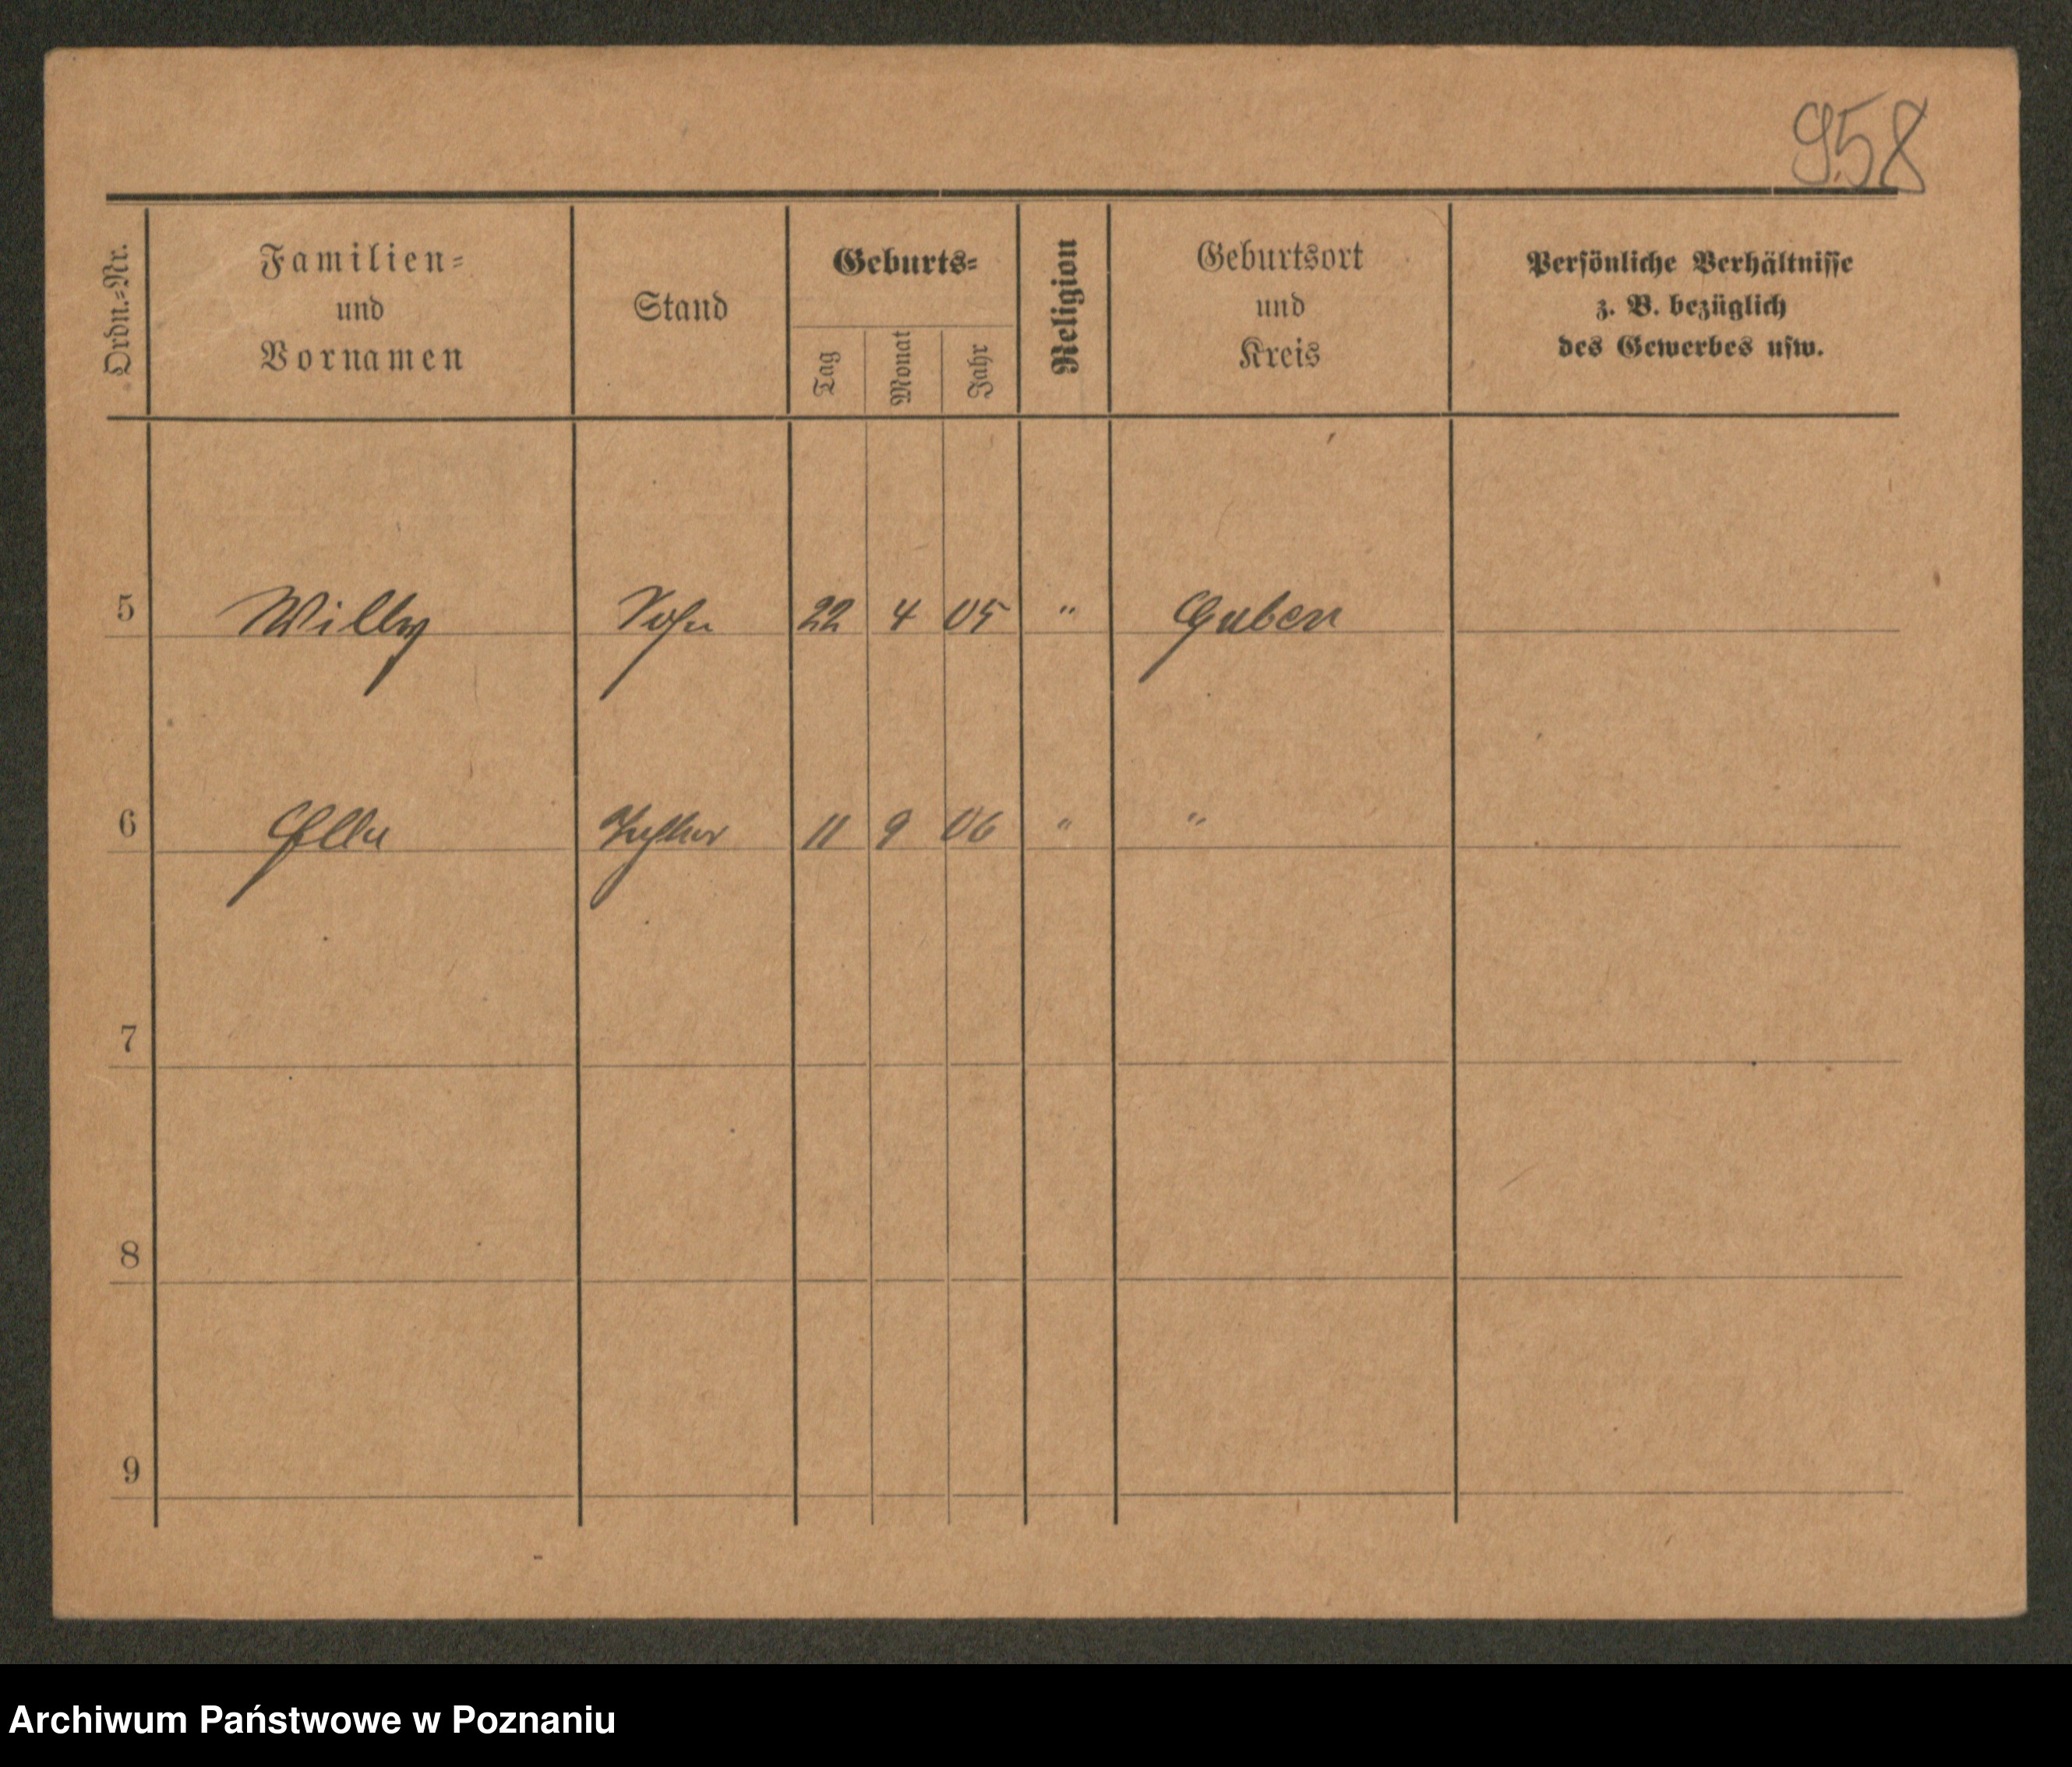 958
Ordn.-Nr.
Familien-
und
Vornamen
Stand
Geburts-
Tag
Monat
Jahr
Religion
Geburtsort
und
Kreis
Persönliche Verhältnisse
z. B. bezüglich
des Gewerbes usw.
5 Willy Sohn 22 4 05 " Guben
6 Ella Tochter 11 9 06 " "
7
8
9
Archiwum Państwowe w Poznaniu